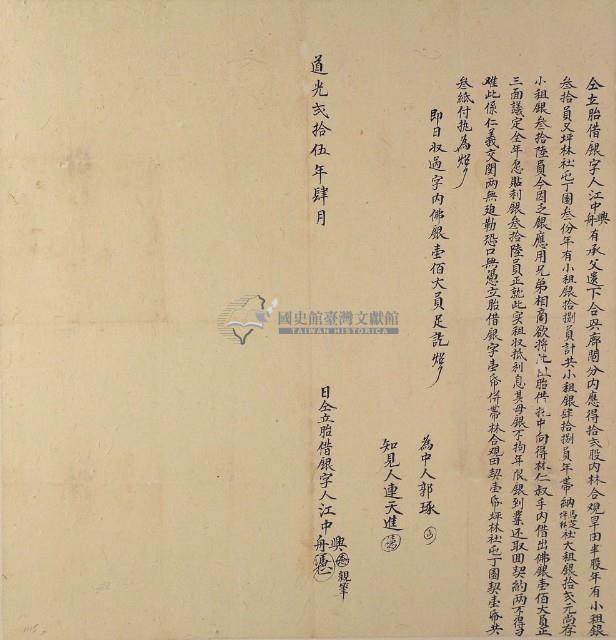 仝立胎借銀字人江中興舟有承父遺下合興廍鬮分內應得拾弍股內林合觀旱田半股年有小租銀
叁拾員又坪林社屯丁園叁份年有小租銀拾捌員計共小租銀肆拾捌員年帶納社大租銀拾弍元尚存
小租銀叁拾陸員今因乏銀應用兄弟相商欲將此胎借托中向得林仁叔手內借出佛銀壹佰大員正
三面議定全年愿貼利銀叁拾陸員正就此実租收抵利息其母銀不拘年限銀到業还取囬契約兩不得刁
难此係仁義交関兩無廹勒恐口無憑立胎借銀字壹帋併帶林合觀田契壹帋坪林社屯丁園契壹帋共
叁紙付执為炤
即日收過字內佛銀壹佰大員足訖炤
為中人郭琢
知見人連天進
道光弍拾伍年肆月
日仝立胎借銀字人江中興舟
親筆
國史館臺灣文獻館
TAIWAN HISTORICA